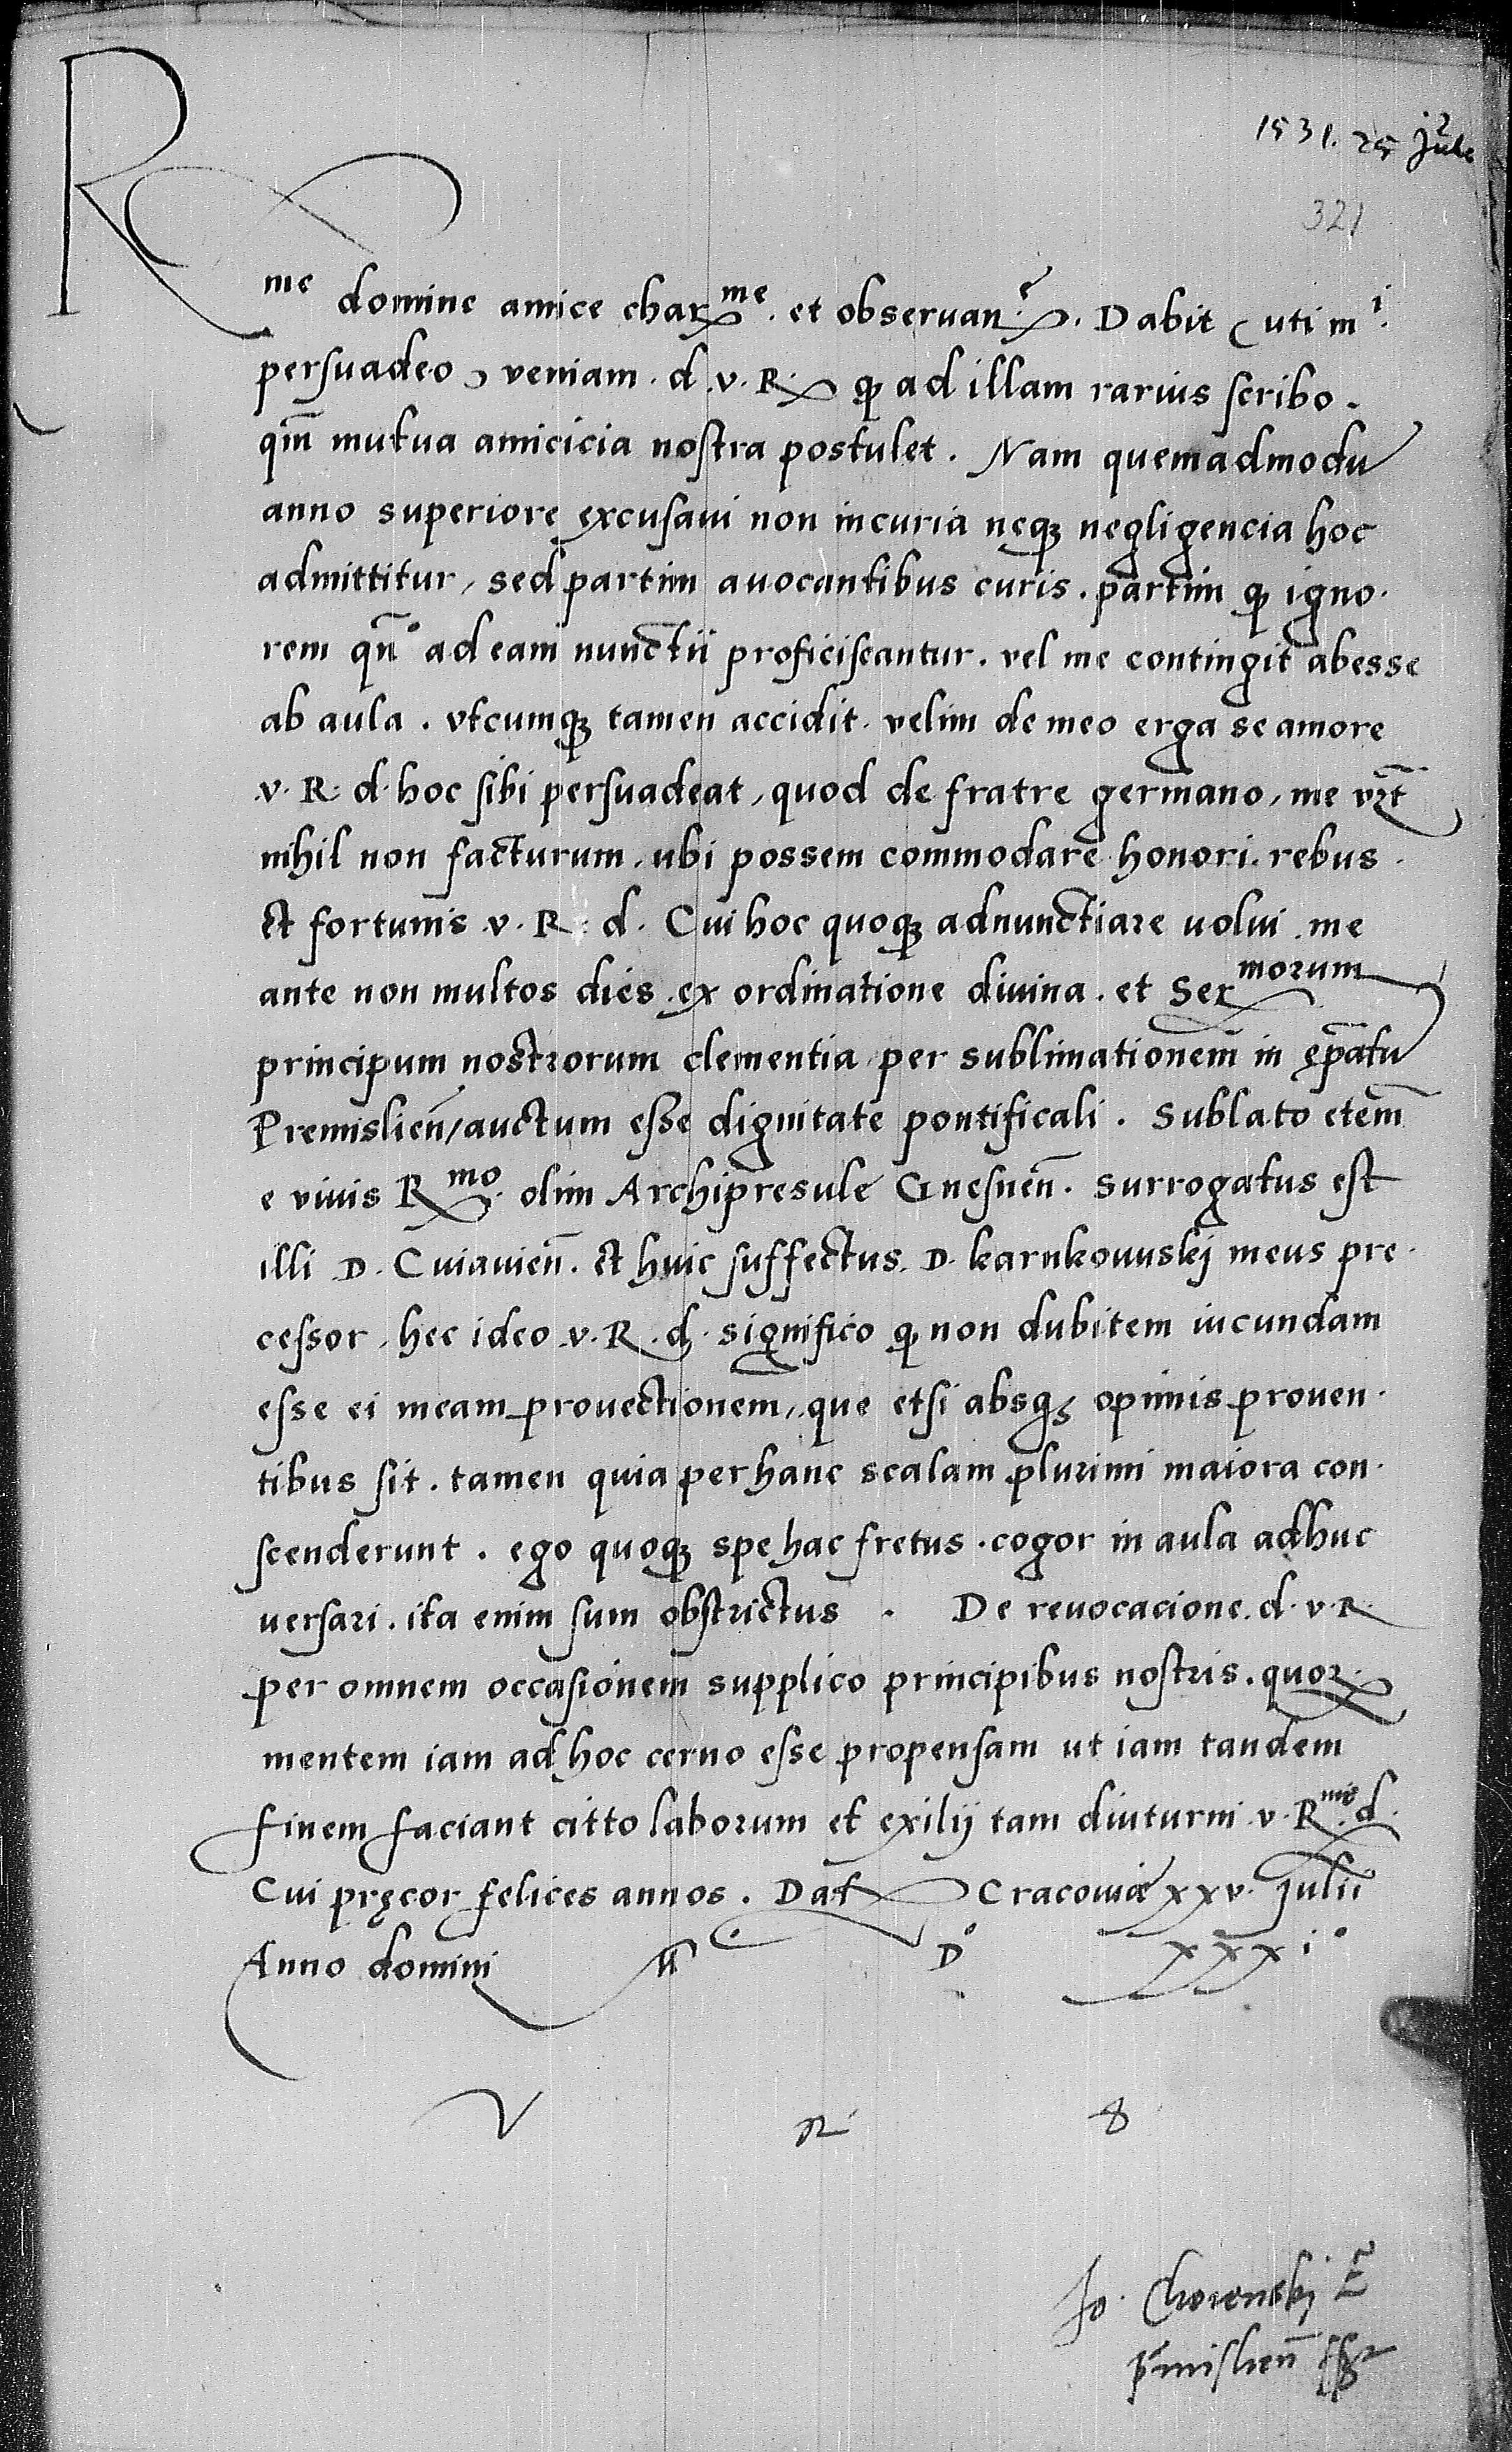 1531. 25 Julii
321
R
me domine amice char me. et obseruan e. Dabit ( uti m i.
persuadeo ) veniam . d . v . R. q ad illam rarius scribo .
qm̄ mutua amicicia nostra postulet . Nam quemadmodu
anno superiore excusaui non incuria neq3 negligencia hoc
admittitur , sed partim auocantibus curis . partim q igno .
rem qn̄ ad eam nunctii proficiscantur . vel me contingit abesse
ab aula . vtcumq3 tamen accidit . velim de meo erga se amore
v . R . d . hoc sibi persuadeat , quod de fratre germano , me
nihil non facturum , ubi possem commodare honori . rebus .
et fortunis . v . R . d . Cui hoc quoq3 adnunctiare uolui . me
ante non multos dies . ex ordinatione diuina . et Ser morum
principum nostrorum clementia , per sublimationem in ep̄atu
Premislien̄ / auctum esse dignitate pontificali . Sublato eteīm
e viuis R mo. olim Archipresule Gnesnen̄ . Surrogatus est
illi D . Cuiauien̄ . et huic suffectus . D . karnkouuskij meus pre .
cessor , hec ideo v . R . d . significo q non dubitem iucundam
esse ei meam prouectionem , que etsi absq3 opimis prouen .
tibus sit . tamen quia per hanc scalam plurimi maiora con .
scenderunt . ego quoq3 spe hac fretus . cogor in aula adhuc
uersari . ita enim sum obstrictus . De reuocacione . d . v . R .
per omnem occasionem supplico principibus nostris . quor
mentem iam ad hoc cerno esse propensam ut iam tandem
finem faciant citto laborum et exilij tam diuturni . v . R me. d .
Cui pręcor felices annos . Dat Cracouiæ xxv . Julii
Anno domini M D° xxxi°
V R d
Jo . Choienskj E
p̄mislien̄ ss